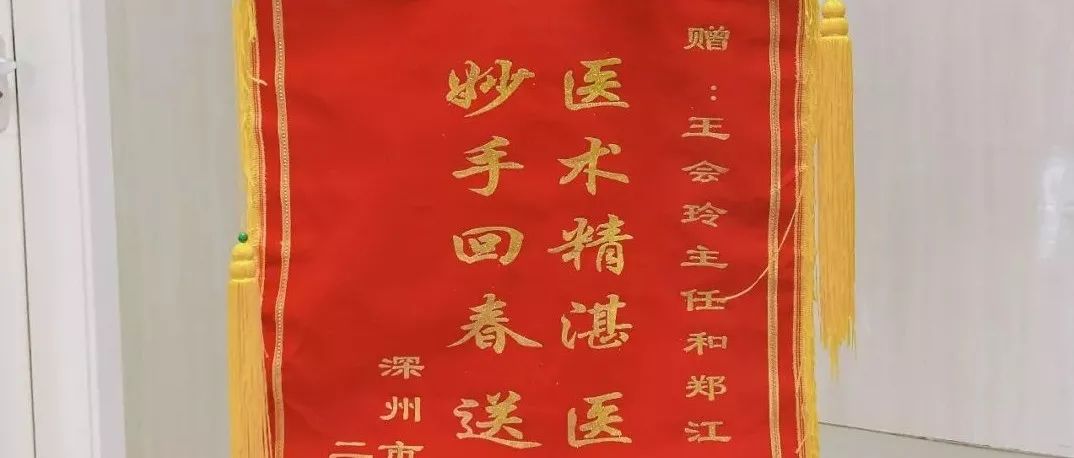 赠：王会玲主任和郑江
医术精湛医
妙手回春送
深州市
二